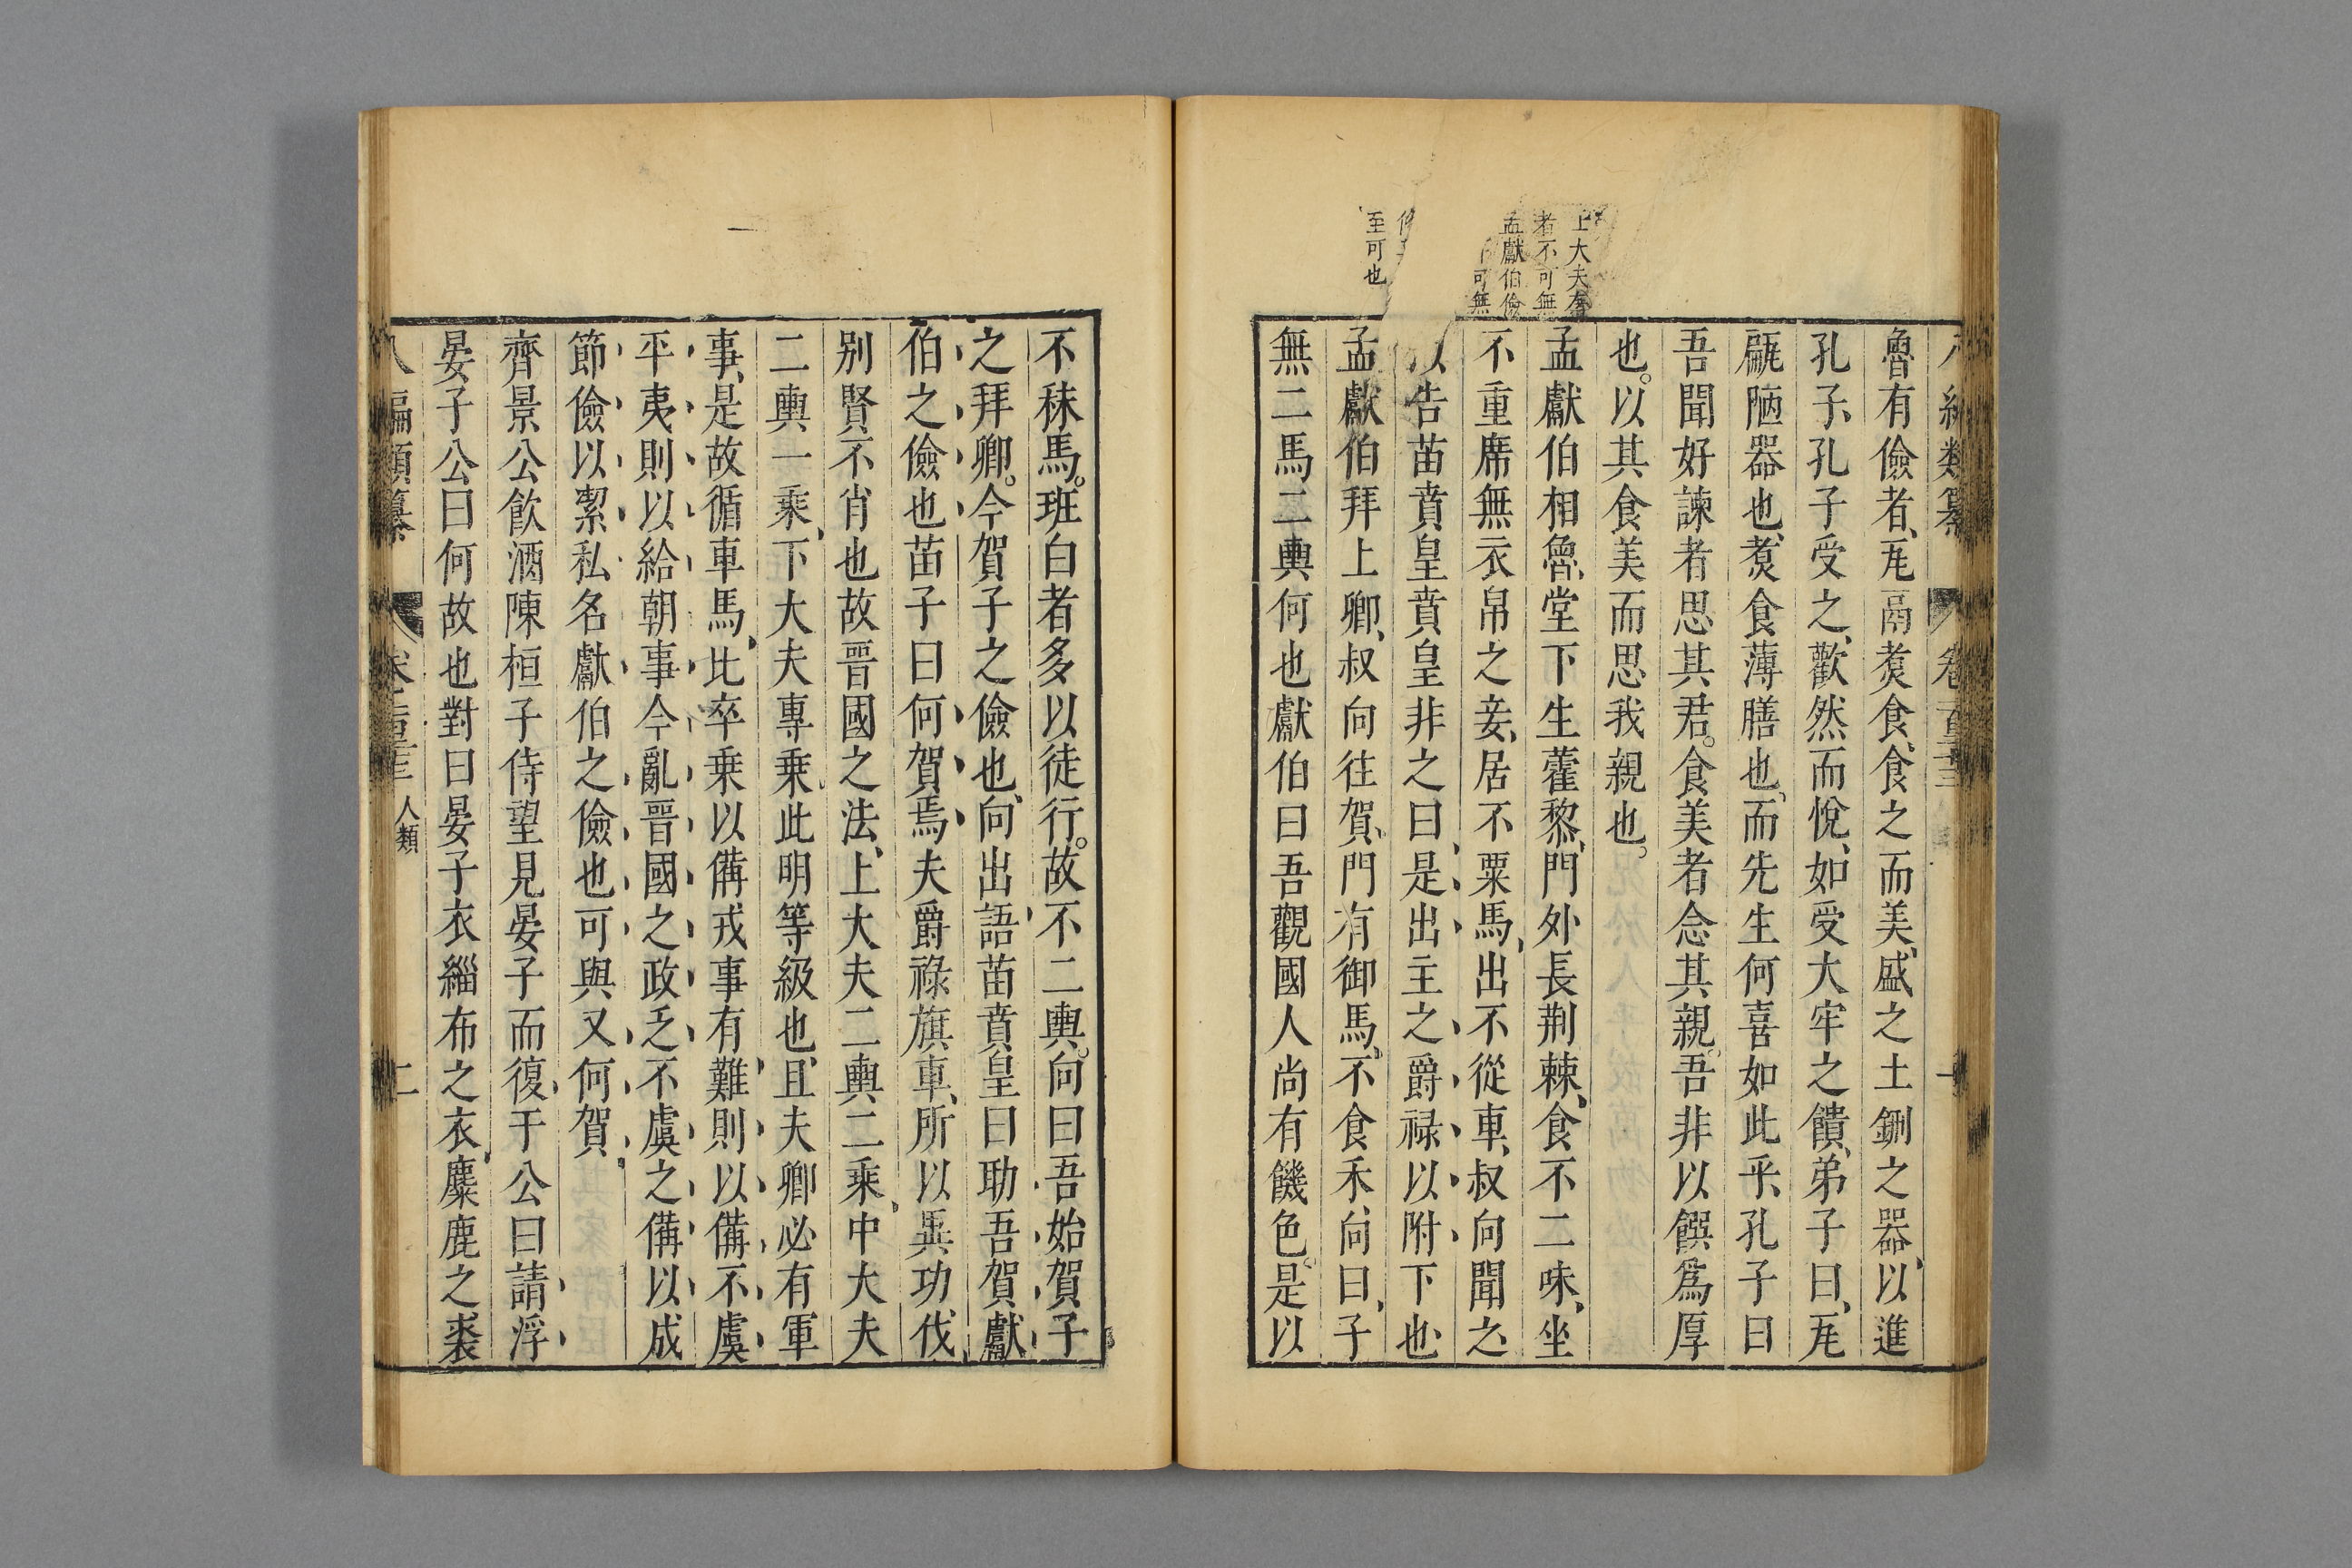 上大夫有
者不可無
孟獻伯儉
可無
至可也
魯有儉者、瓦鬲煑食、食之而美、盛之土鉶之器、以進
孔子、孔子受之、歡然而悅、如受大牢之饋、弟子曰、瓦
甂陋器也、煑食薄膳也、而先生何喜如此乎、孔子曰
吾聞好諫者思其君。食美者念其親。吾非以饌爲厚
也。以其食美而思我親也。
孟獻伯相魯、堂下生藿藜、門外長荆棘、食不二味、坐
不重席無衣帛之妾、居不粟馬、出不從車、叔向聞之
以告苗賁皇賁皇非之曰、是出主之爵禄以附下也
孟獻伯拜上卿、叔向往賀、門有御馬、不食禾、向曰、子
無二馬二輿何也獻伯曰吾觀國人尚有饑色。是以
不秣馬。班白者多以徒行。故不二輿。向曰吾始賀子
之拜卿。今賀子之儉也、向出語苗賁皇曰助吾賀獻
伯之儉也苗子曰何賀焉夫爵祿旗車、所以異功伐
别賢不肖也故晉國之法、上大夫二輿二乘、中大夫
二輿一乘、下大夫專乘、此明等級也、且夫卿必有軍
事、是故循車馬、比卒乗以備戎事有難則以備不虞
平夷則以給朝事今亂晉國之政乏不虞之備以成
節儉以潔私名獻伯之儉也可與又何賀、
齊景公飲酒陳桓子侍望見晏子而復于公曰請浮
晏子公曰何故也對曰晏子衣緇布之衣、麋鹿之裘
八編類纂
人類
二